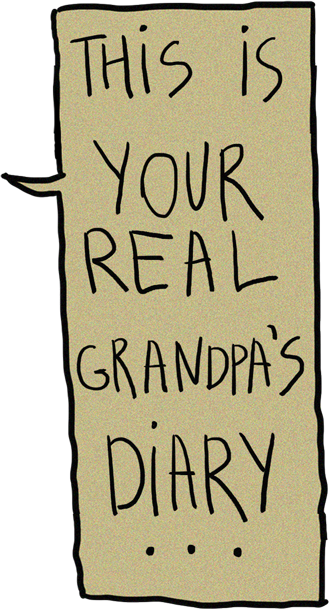 THiS iS
YOUR
REAL
GRANDPA'S
DiARY
...